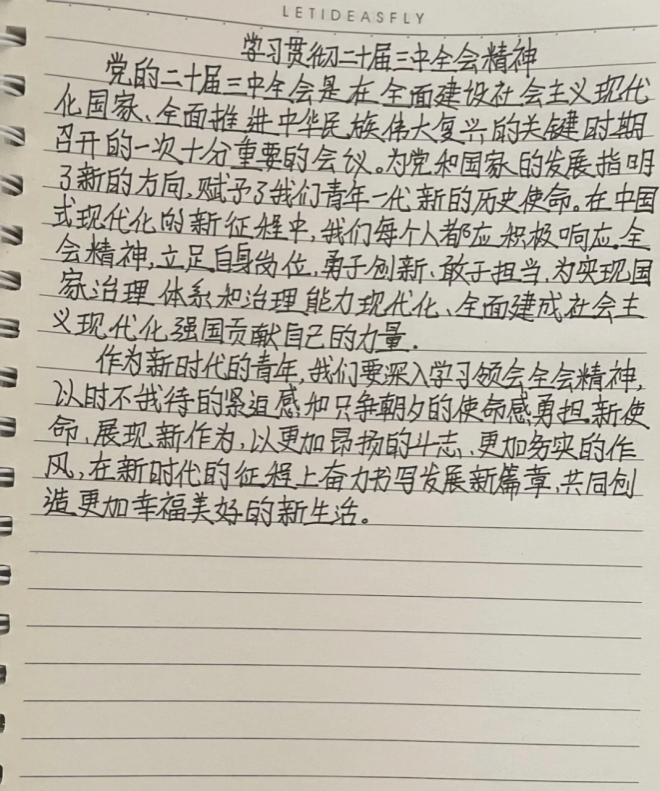 LETIDEASFLY
学习贯彻二十届三中全会精神
党的二十届三中全会是在全面建设社会主义现代
化国家、全面推进中华民族伟大复兴的关键时期
召开的一次十分重要的会议。为党和国家的发展指明
了新的方向,赋予了我们青年一代新的历史使命。在中国
式现代化的新征程中,我们每个人都应积极响应全
会精神,立足自身岗位,勇于创新、敢于担当,为实现国
家治理体系和治理能力现代化、全面建成社会主
义现代化强国贡献自己的力量.
作为新时代的青年,我们要深入学习领会全会精神,
以时不我待的紧迫感和只争朝夕的使命感勇担新使
命,展现新作为,以更加昂扬的斗志、更加务实的作
风,在新时代的征程上奋力书写发展新篇章,共同创
造更加幸福美好的新生活。